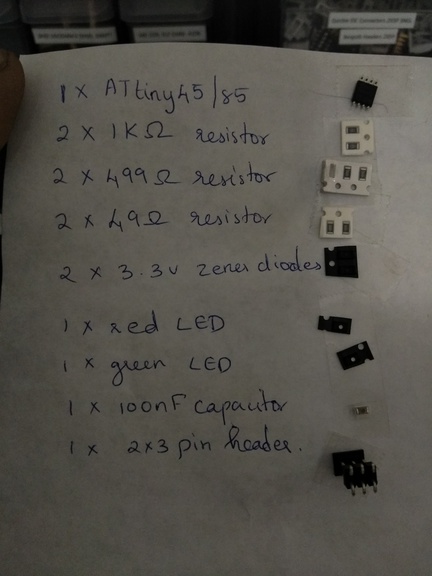 1 x ATtiny45/85
2 x 1KΩ resistor
2 x 499Ω resistor
2 x 49Ω resistor
2 x 3.3v zener diodes
1 x red LED
1 x green LED
1 x 100nF capacitor
1 x 2x3 pin header.